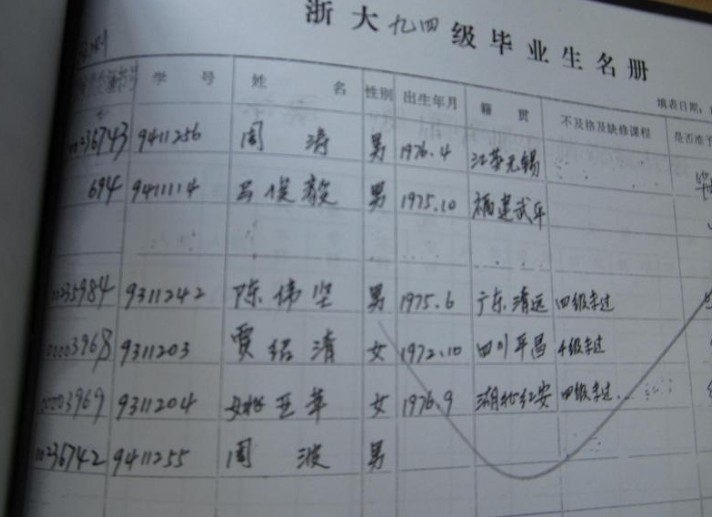 浙大九四级毕业生名册
填表日期:
学号 姓名 性别 出生年月 籍贯 不及格及缺修课程 是否准予
00236743 9411256 周涛 男 1976.4 江苏无锡
694 9411114 吕俊毅 男 1975.10 福建武平
00235984 9311242 陈伟坚 男 1975.6 广东清远 四级未过
00003968 9311203 贾绍清 女 1972.10 四川平昌 4级未过
00003969 9311204 姚亚苹 女 1976.9 湖北红安 四级未过
00236742 9411255 周波 男